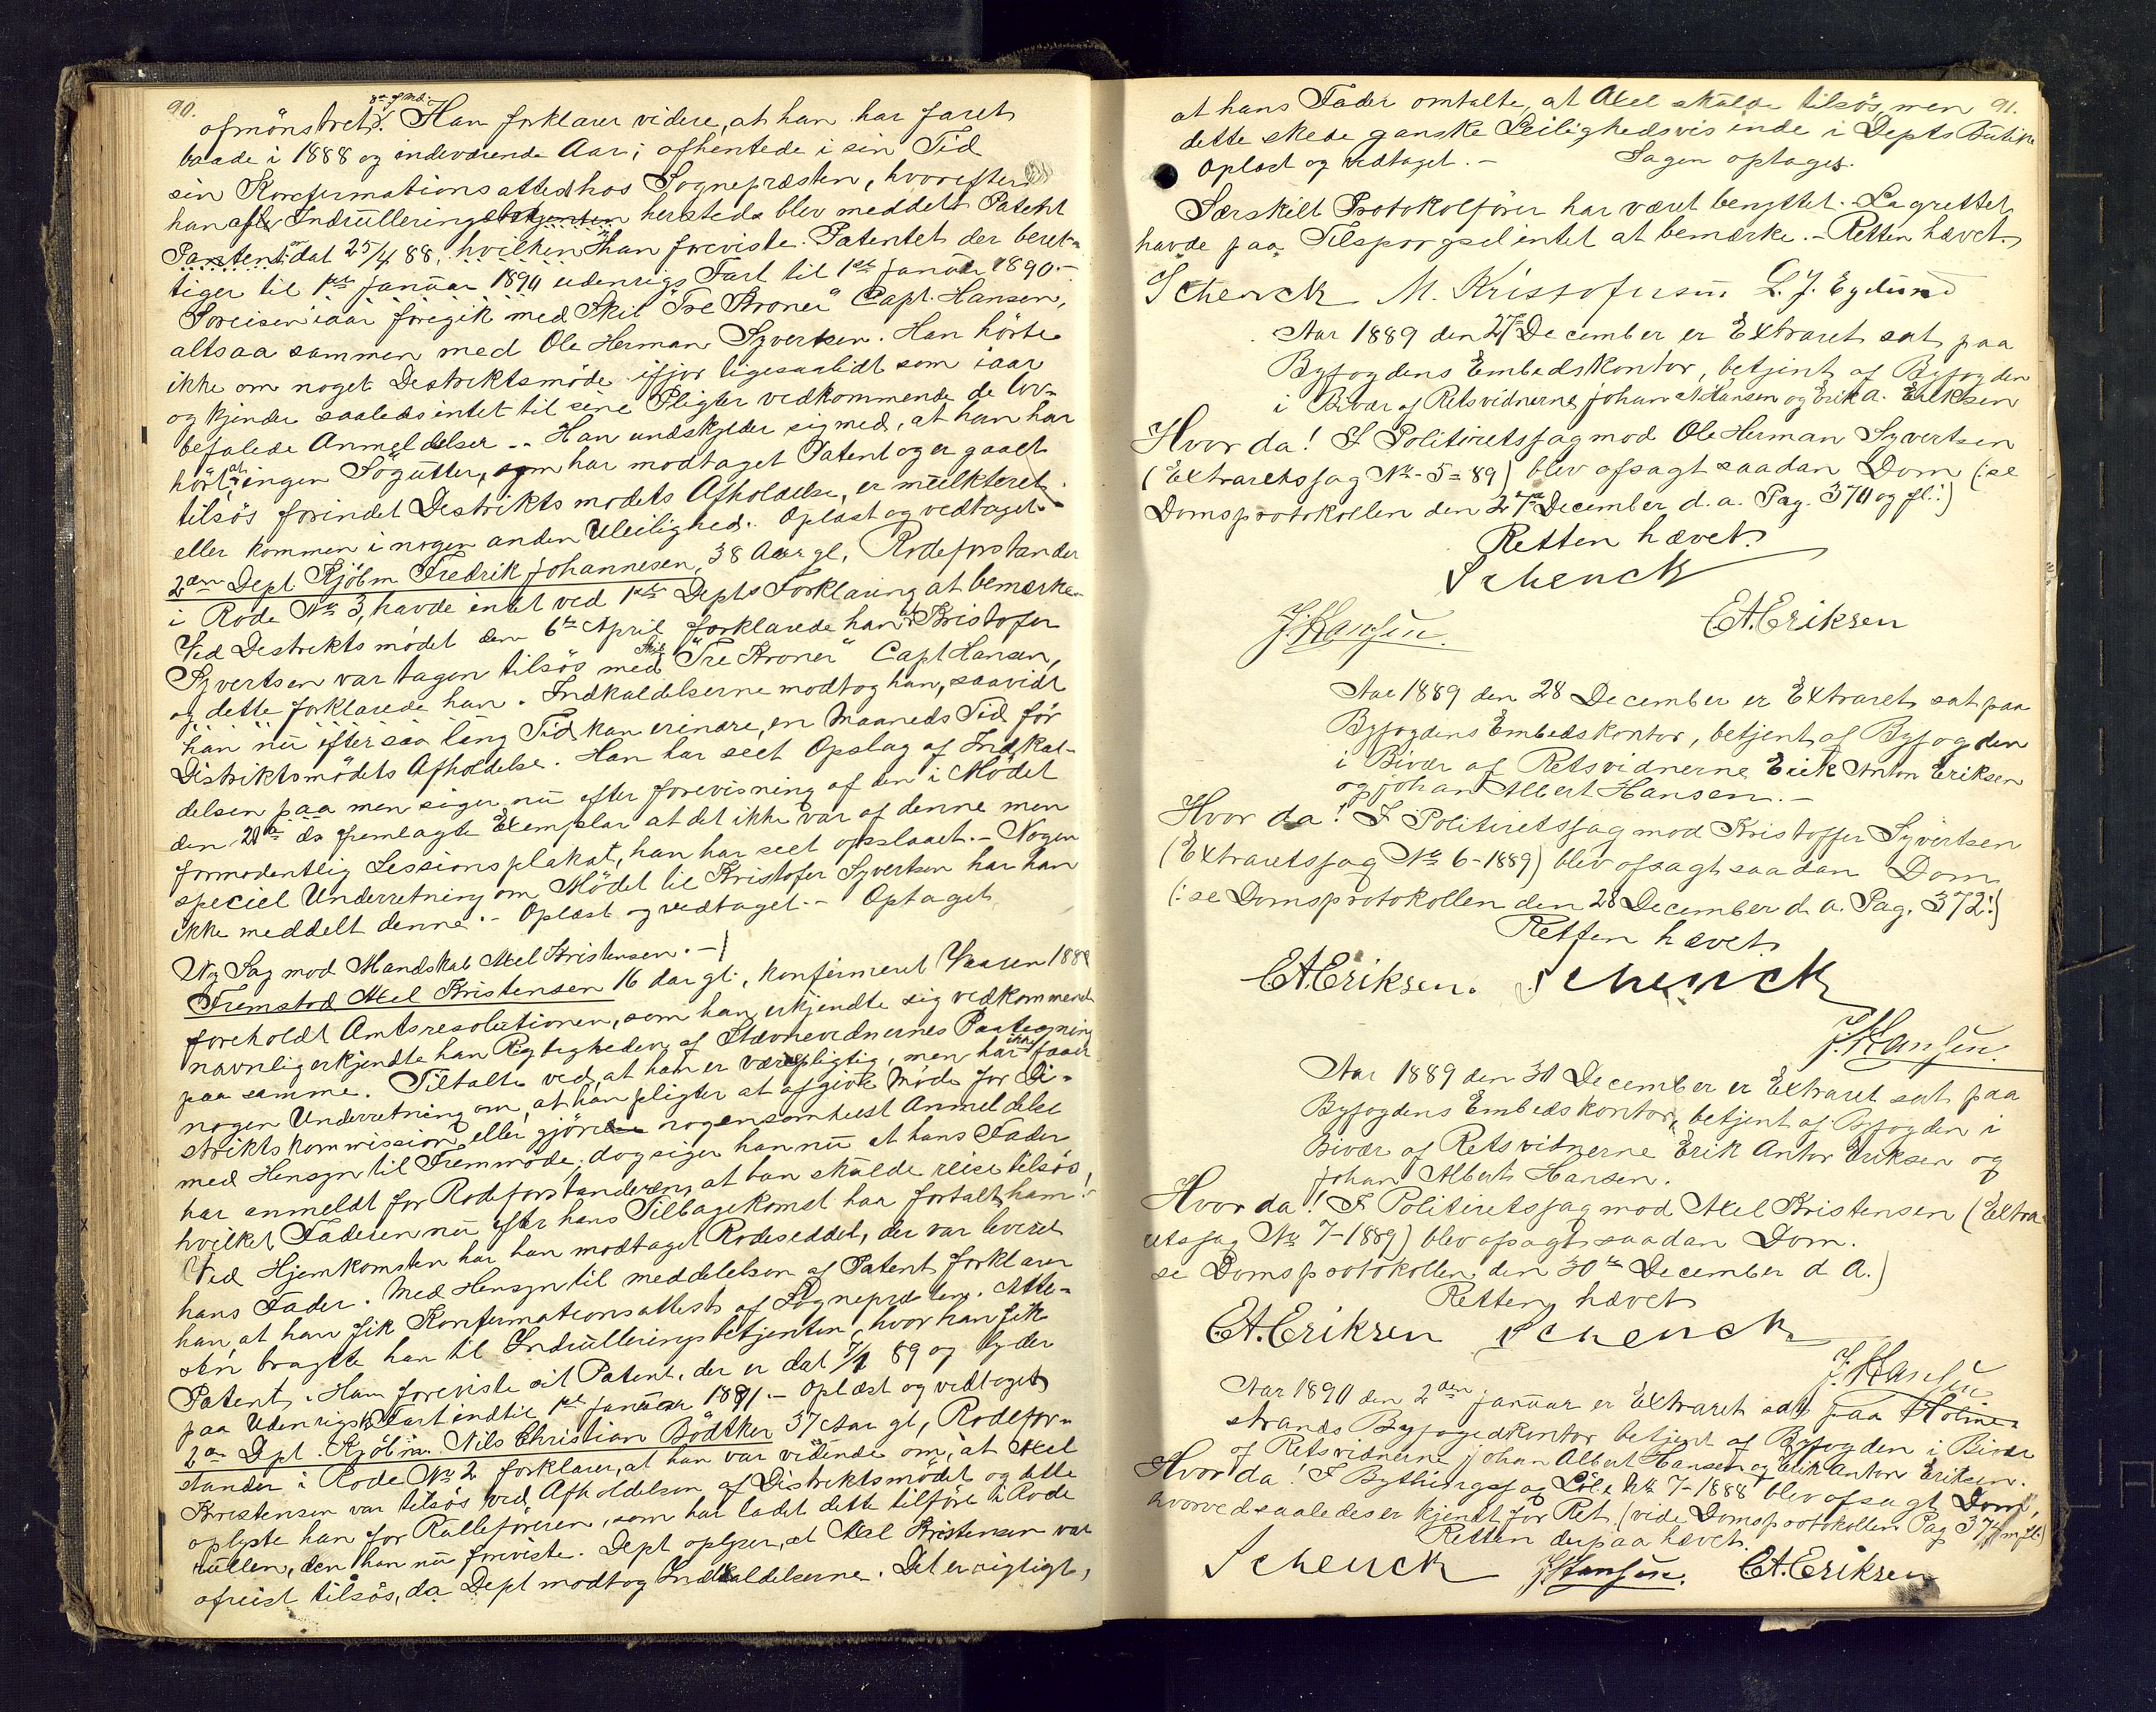 90.
8de f. Md.
afmönstret. Han forklarer videre, at han har faret
baade i 1888 og indeværende Aar; afhentede i sin Tid
sin Konfirmationsattest hos Sognepræsten, hvorefter
han af Indrulleringsbetjenten hersteds blev meddelt Patent
Patentent dat 25/4 88, hvilken han foreviste. Patentet der beret-
tiger til 1ste Januar 1890 udenrigs Fart til 1ste januar 1890.-
Soreisen iaar foregik med Skib "Tre Kroner" Capt. Hansen,
altsaa sammen med Ole Herman Syvertsen. Han hörte
ikke om noget Destriktsmöde ifjor ligesaalidt som iaar
og kjender saaledes intet til sine Pligter vedkommende de lov-
befalede Anmeldelser.- Han undskylder sig med, at han har
hört, at ingen Sögutter, som har modtaget Patent og er gaaet
tilsös forinden Destriktsmödets Afholdelse, er mulkteret
eller kommen i nogen anden Uleilighed. Oplæst og vedtaget.
2den Dept. Kjöbm Fredrik Johannesen, 38 Aar gl, Rodeforstander
i Rode No 3, havde intet ved 1ste Depts Forklaring at bemærke.
Ved Destriktsmödet den 6te April forklarede han at Kristofer
Syvertsen var tagen tilsös med Skib "Tre Kroner" Capt Hansen,
og dette forklarede han. Indkaldelserne modtog han, saavidt
han nu efter saa lang Tid kan erindre, en Maaneds Tid för
Distriktsmödets Afholdelse. Han har seet Opslag af Indkal-
delsen paa men siger nu efter forevisning af den i Mödet
den 20de ds fremlagte Exemplar at det ikke var af denne men
formodentlig Sessionsplakat, han har seet opslaaet.- Nogen
speciel Underretning om Mödet til Kristofer Syvertsen har han
ikke meddelt denne.- Oplæst og vedtaget.- Optaget
Ny Sag mod Mandskab Axel Kristensen.-
Fremstod Axel Kristensen 16 Aar gl., konfirmeret Vaaren 1888
foreholdt Amtsresolutionen, som han erkjendte sig vedkommende
navnlig erkjendte han Rigtigheden af Stævnevidnernes Paategning
paa samme. Tiltalte ved, at han er værnepligtig, men har ikke faaet
nogen Underretning om, at han pligter at afgive Möde for Di-
striktskommission eller gjöre nogensomhelst Anmeldelse
med Hensyn til Fremmöde; dog siger han nu at hans Fader
har anmeldt for Rodeforstanderen, at han skulde reise tilsös,
hvilket Faderen nu efter hans Tilbagekomst har fortalt ham.-
Ved Hjemkomsten har han modtaget Rodeseddel, der var leveret
hans Fader. Med Hensyn til meddelelsen af Patent forklarer
han, at han fik Konfirmationsattest af Sognepræsten. Atte-
sten bragte han til Indrulleringsbetjenten, hvor han fik
Patent. Han foreviste sit Patent, der er dat 7/1 89 og lyder
paa Udenrigsk Fart indtil 1ste januar 1891.- Oplæst og vedtaget
2den Dpt. Kjöbm. Nils Christian Bödtker 37 Aar gl, Rodefor-
stander i Rode No 2 forklarer, at han var vidende om, at Axel
Kristensen var tilsös ved Afholdelsen af Distriktsmödet og dette
oplyste han for Rulleföreren, som har ladet dette tilföre i Rode
rullen, den han nu foreviste. Dept oplyser, at Axel Kristensen var
afreist tilsös, da Dept modtog Indkaldelserne. Det er rigtigt,
91.
at hans Fader omtalte, at Axel skulde tilsös, men
dette skede ganske Leilighedsvis inde i Depts Butik
Oplæst og vedtaget.- Sagen optages.
Særskilt Protokolförer har været benyttet. Lagrettet
havde paa Tilspörgsel intet at bemærke.- Retten hævet.
Schenck M. Kristofersen L. J. Eglund
Aar 1889 den 27de December er Extraret sat paa
Byfogdens Embedskontor, betjent af Byfogden
i Bivær af Retsvidnerne Johan A Hansen og Erik A. Eriksen
Hvor da! I Politiretssag mod Ole Herman Syvertsen
(Extraretssag No - 5 - 89) blev afsagt saadan Dom (:se
Domsprotokollen den 27de December d. a. Pag. 370 og fl:)
Retten hævet.
Schenck
J. Hansen. E A. Eriksen
Aar 1889 den 28 December er Extraret sat paa
Byfogdens Embedskontor, betjent af Byfogden
i Bivær af Retsvidnerne Erik Anton Eriksen
og Johan Albert Hansen.-
Hvor da! I Politiretssag mod Kristoffer Syvertsen
(Extraretssag No 6 - 1889) blev afsagt saadan Dom
(:se Domsprotokollen den 28 December d. a. Pag. 372:)
Retten hævet
E A. Eriksen. Schenck
J. Hansen.
Aar 1889 den 30 December er Extraret sat paa
Byfogdens Embedskontor, betjent af Byfogden i
Bivær af Retsvidnerne Erik Anton Eriksen og
Johan Albert Hansen.
Hvor da! I Politiretssag mod Axel Kristensen (Extra-
retssag No 7 - 1889) blev afsagt saadan Dom.
se Domsprotokollen den 30te December d. A.)
Retten hævet
E A. Eriksen Schenck
J. Hansen
Aar 1890 den 2den januar er Extraret sat paa Holme-
strands Byfogedkontor betjent af Byfogden i Bivær
af Retsvidnerne Johan Albert Hansen og Erik Anton Eriksen.
Hvor da! I Bythingssag Lit. No 7 - 1888 blev afsagt Dom,
hvorved saaledes er kjendt for Ret (vide Domsprotokollen Pag 374 m fl.)
Retten derpaa hævet.
Schenck J. Hansen. E A. Eriksen